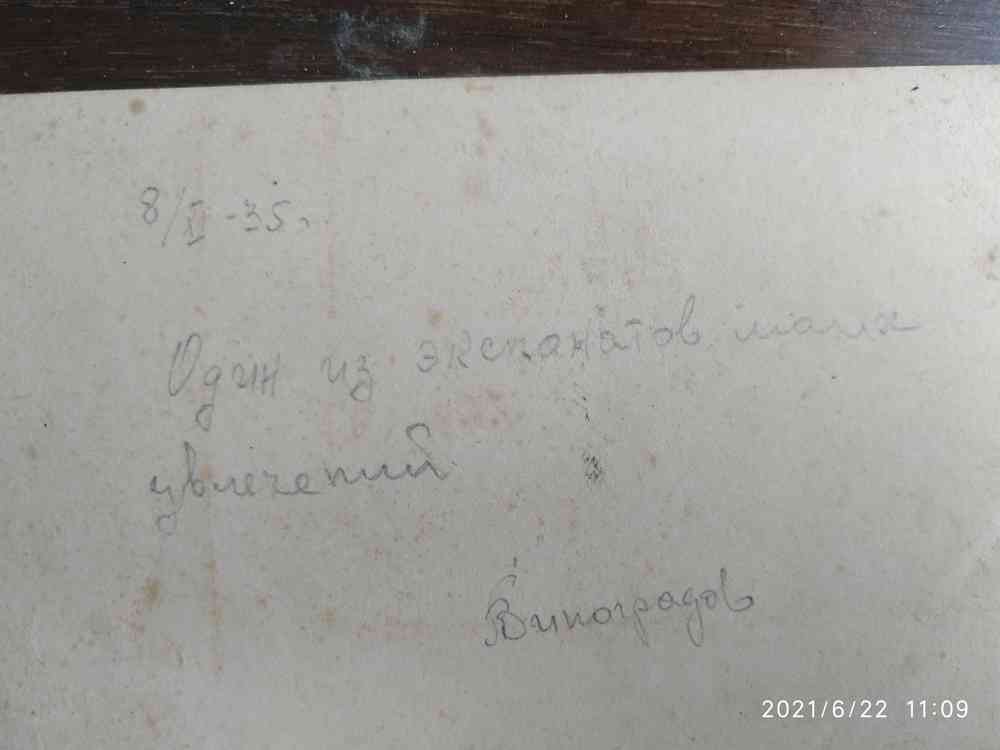 8/XI -35г.
Один из экспанатов моих
увлечений
Виноградов
2021/6/22 11:09